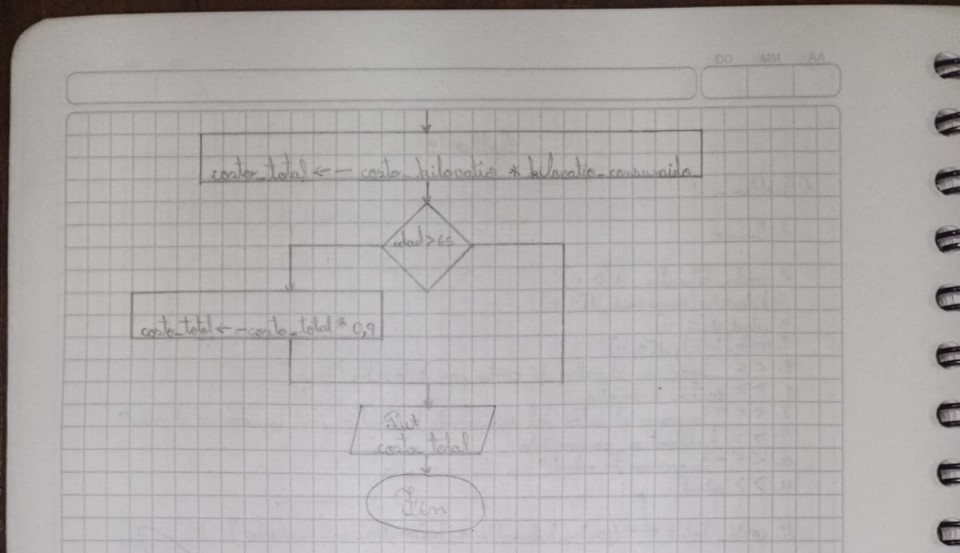 DD MM AA
costo_total ← costo_kilovatio * kilovatio_consumido
edad>65
costo_total ← costo_total * 0,9
costo_total
Fin